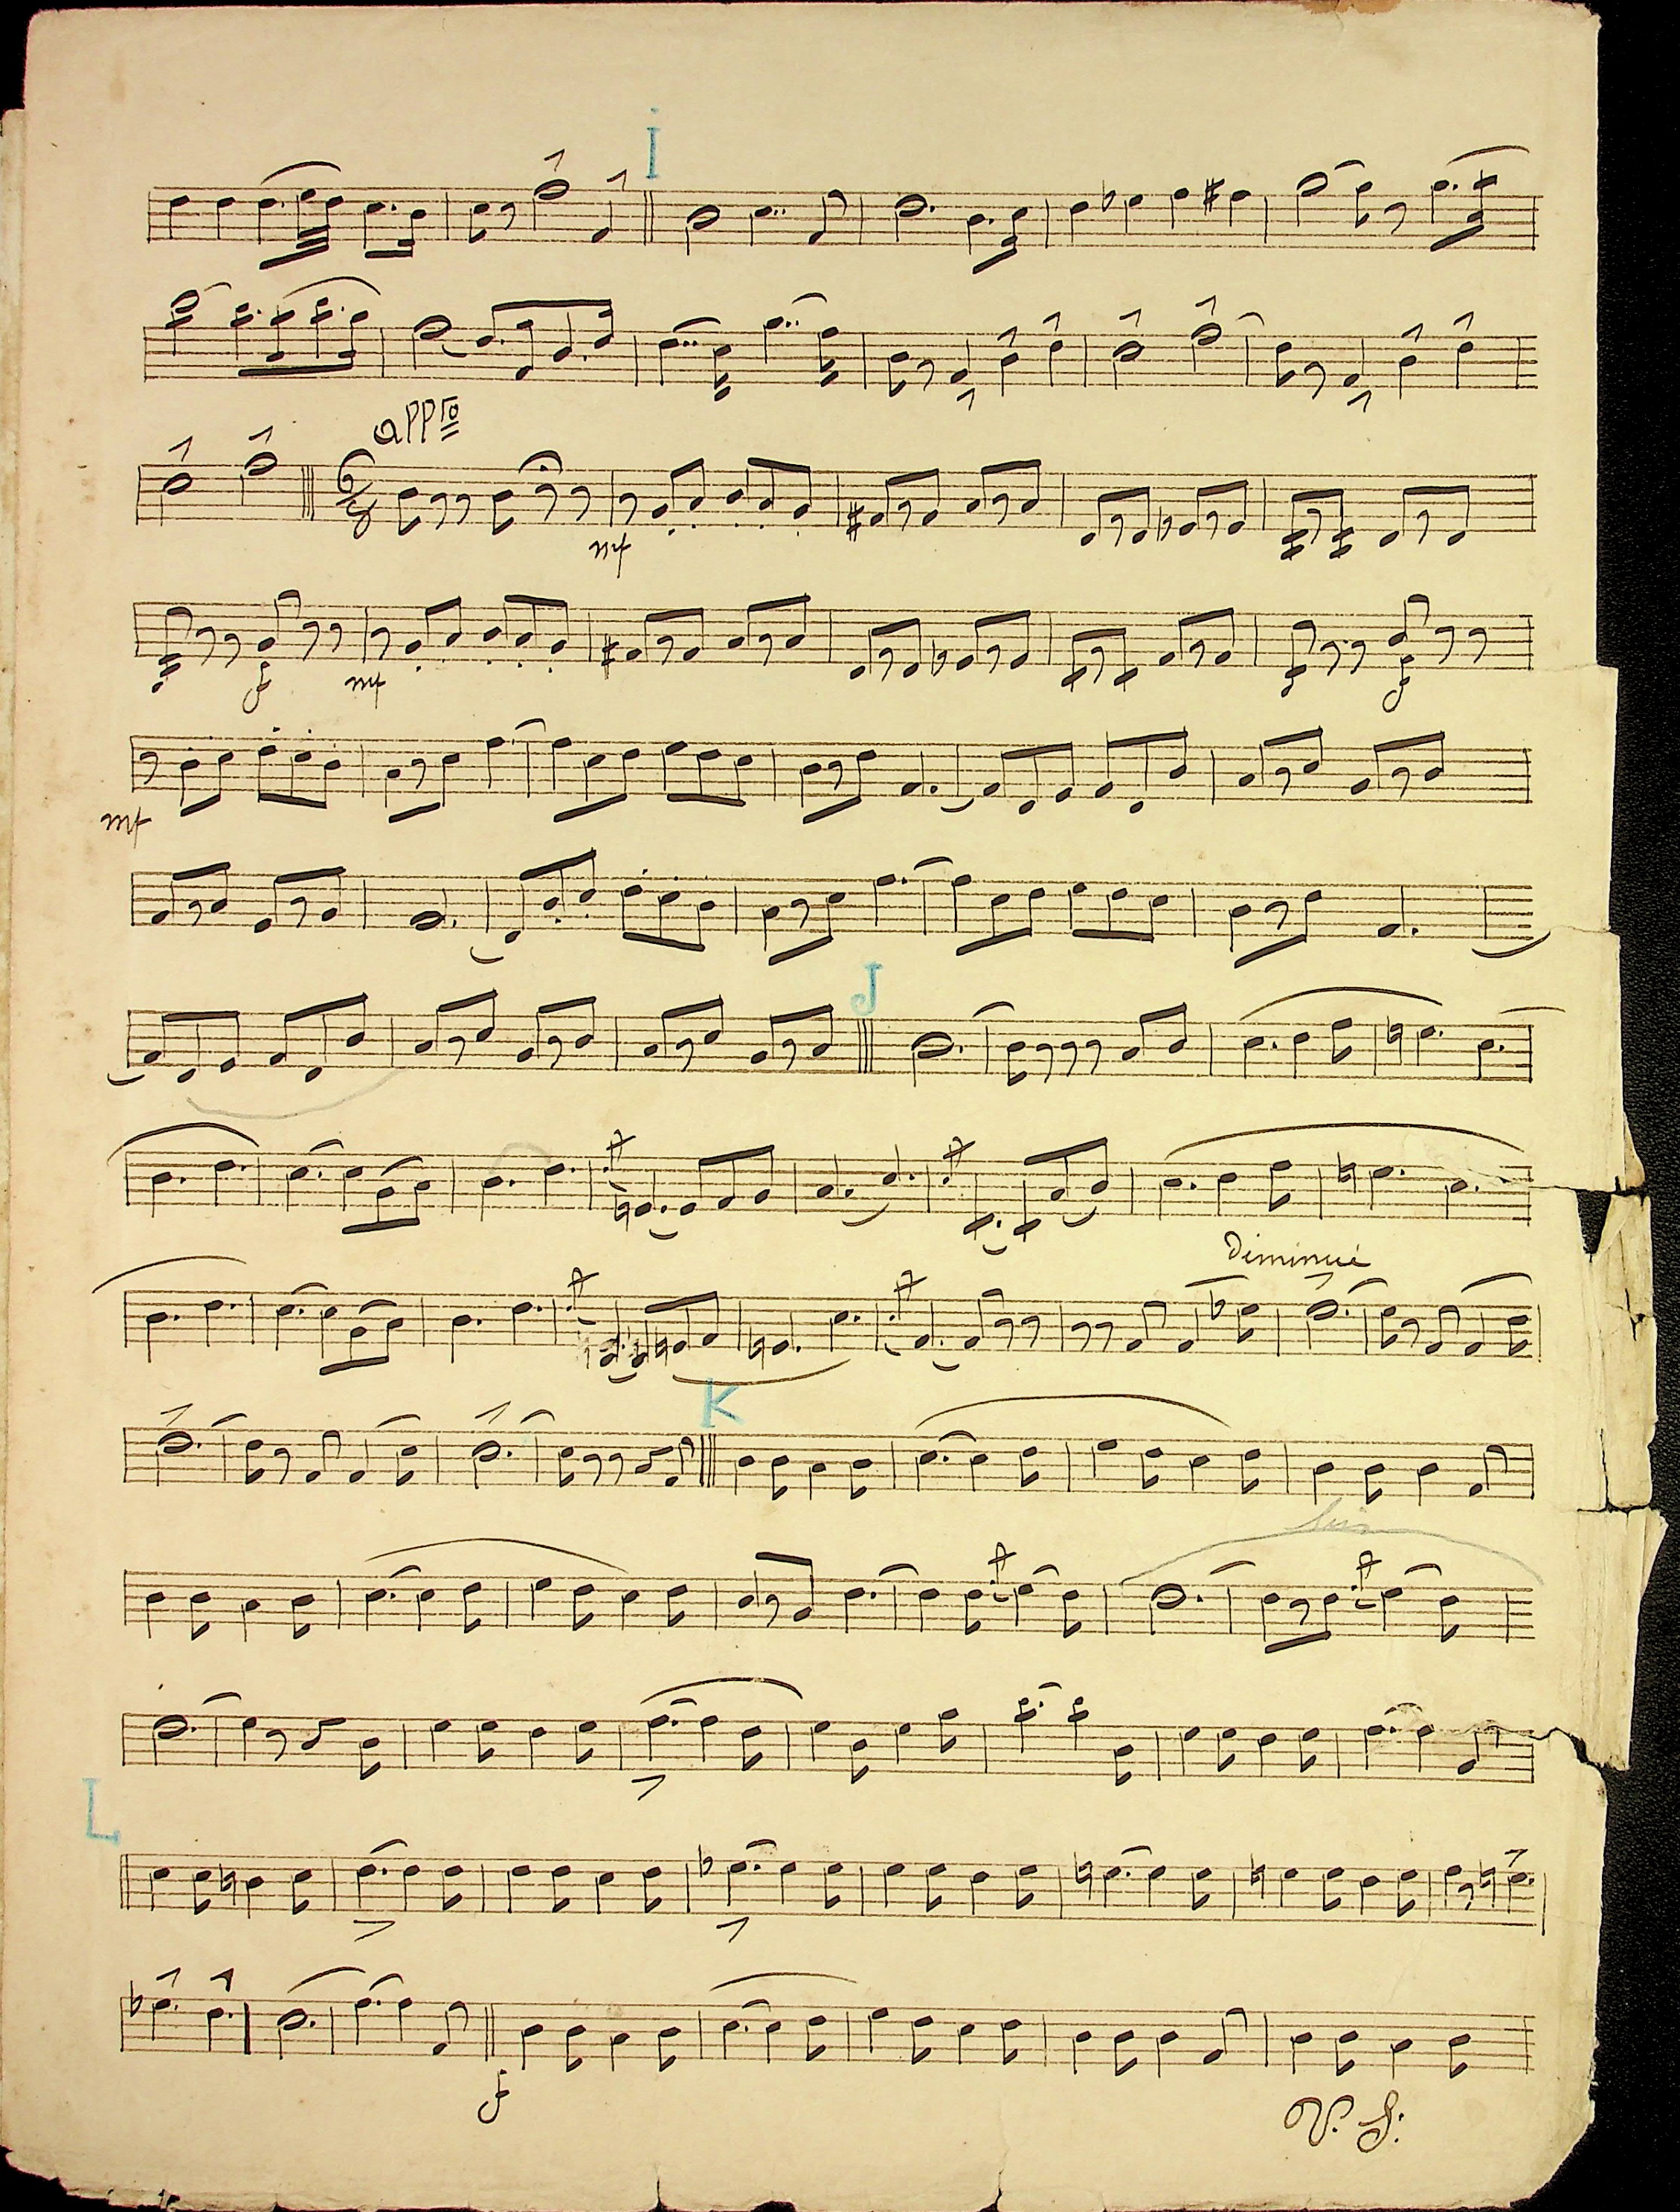 I
appro
6/8
mf
f mf f
mf
J
Diminué
K
L
f
V. S.